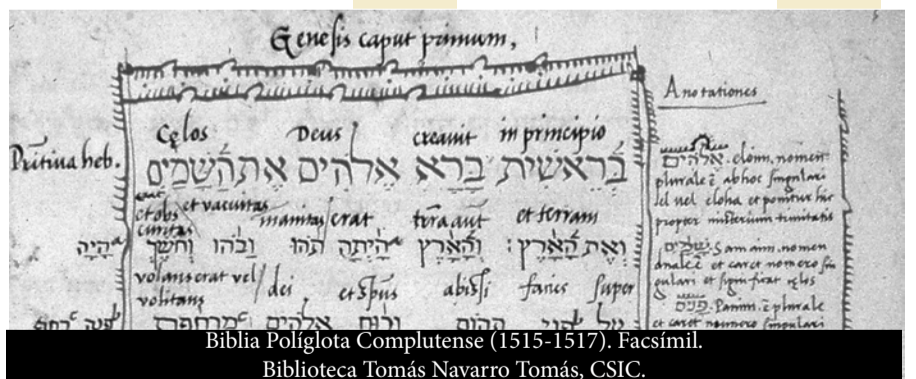 Genesis caput primum,
Anotationes
Cęlos Deus creavit in principio
Primitiva heb.
בְּרֵאשִׁית בָּרָא אֱלֹהִים אֵת הַשָּׁמַיִם
et vacuitas inanitas erat terra aut et terram
וְאֵת הָאָרֶץ׃ וְהָאָרֶץ הָיְתָה תֹהוּ וָבֹהוּ וְחֹשֶׁךְ
הָיָה
volans erat vel dei et sp̄us abissi facies super
volitans
אֱלֹהִים. eloim. nomen
plurale ē ab hoc singulari
el vel eloha et ponitur hic
propter misterium trinitatis
שָׁמַיִם. Samaim. nomen
et caret nomero sin
gulari et significat cęlos
פָּנִים. Panim. ē plurale
et caret numero singulari
Biblia Políglota Complutense (1515-1517). Facsímil.
Biblioteca Tomás Navarro Tomás, CSIC.